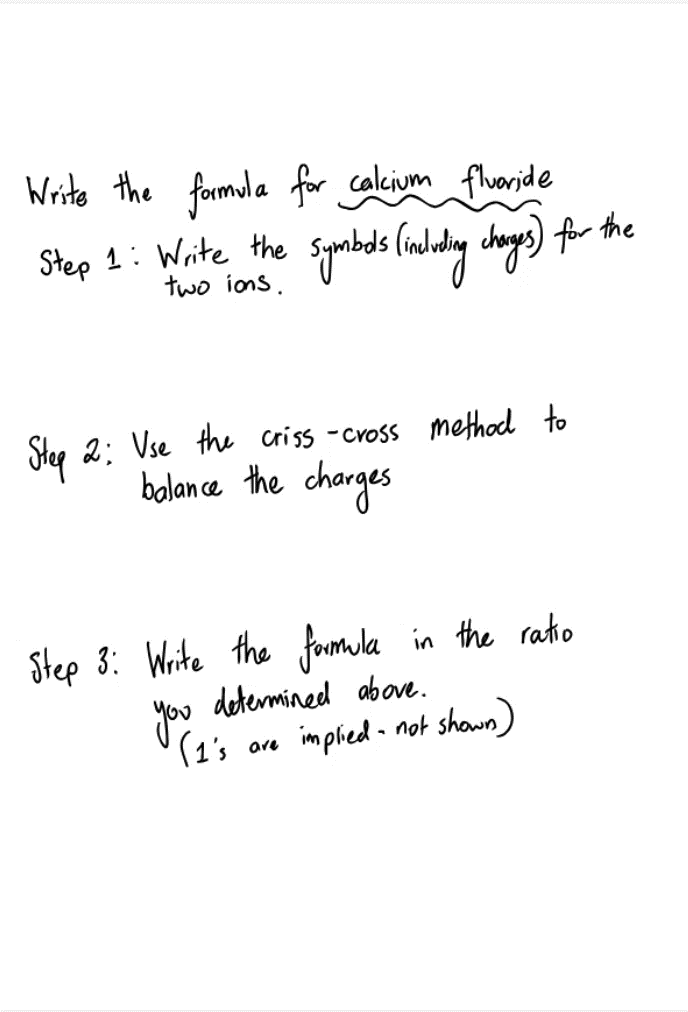 Write the formula for calcium fluoride
Step 1: Write the symbols (including charges) for the
two ions.
Step 2: Use the criss-cross method to
balance the charges
Step 3: Write the formula in the ratio
you determined above.
(1's are implied - not shown)